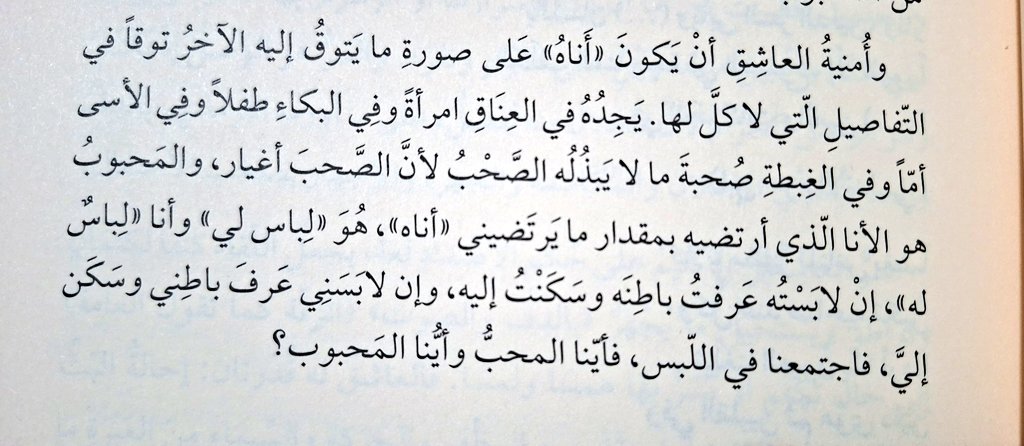 وأُمنيةُ العاشِقِ أنْ يَكونَ «أَناهُ» عَلى صورةِ ما يَتوقُ إليه الآخرُ توقاً في
التّفاصيلِ الّتي لا كلَّ لها. يَجِدُهُ في العِنَاقِ امرأةً وفِي البكاءِ طفلاً وفِي الأسى
أمّاً وفي الغِبطةِ صُحبةَ ما لا يَبذُلُه الصَّحْبُ لأنَّ الصَّحبَ أغيار، والمَحبوبُ
هو الأنا الّذي أرتضيه بمقدار ما يَرتَضيني «أناه»، هُوَ «لِباس لي» وأنا «لِباسٌ
له»، إنْ لابَسْتُه عَرفتُ باطِنَه وسَكَنْتُ إليه، وإن لابَسَنِي عَرفَ باطِنِي وسَكَن
إليَّ، فاجتمعنا في اللّبس، فأيّنا المحبُّ وأيُّنا المَحبوب؟